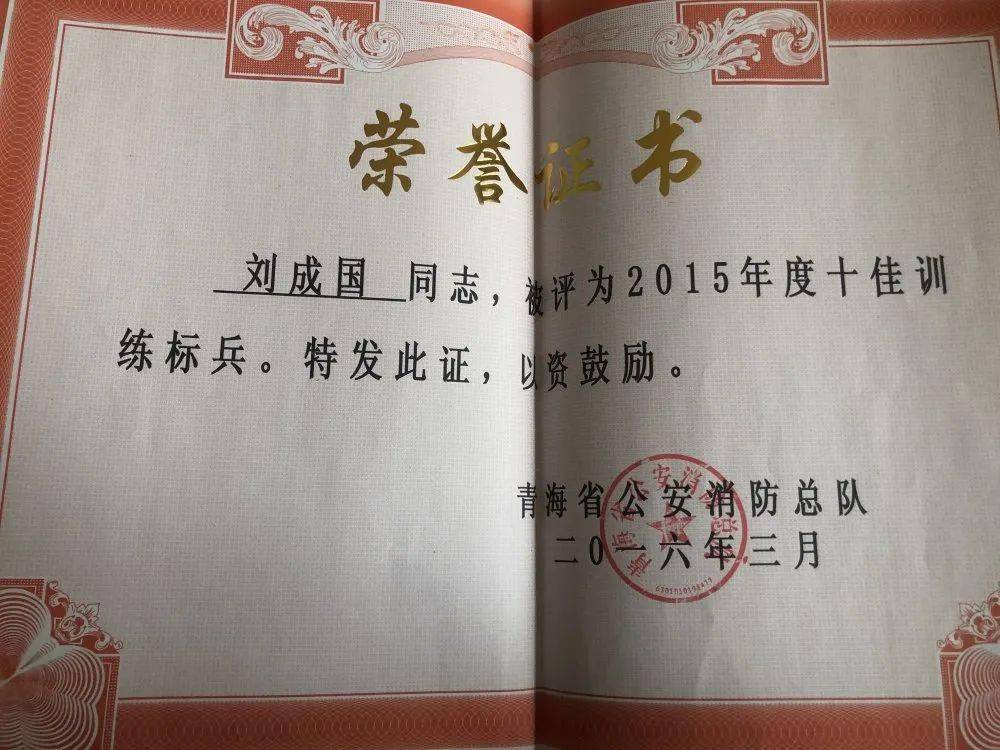 荣誉证书
刘成国 同志，被评为2015年度十佳训
练标兵。特发此证，以资鼓励。
青海省公安消防总队
二〇一六年三月
青海省公安消防总队